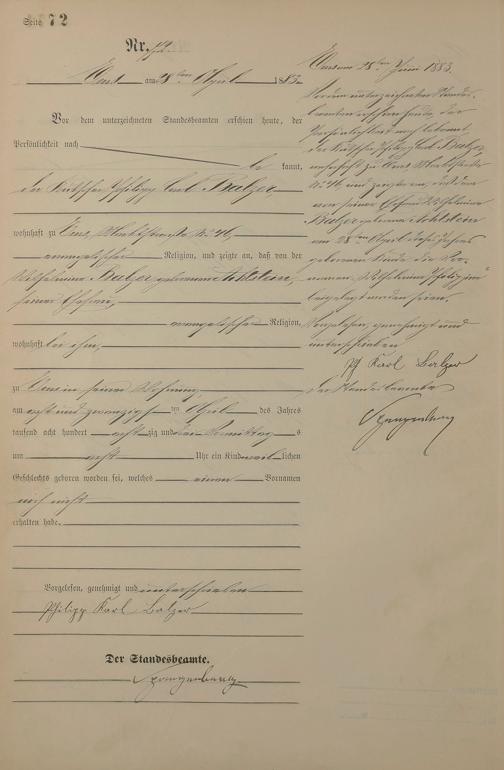 Seite 72
Nr. 72.
Ems am 28ten April 1883
Vor dem unterzeichneten Standesbeamten erschien heute, der
Persönlichkeit nach
be kannt,
der Kutscher Philipp Carl Balzer,
wohnhaft zu Ems, No 46,
evangelischer Religion, und zeigte an, daß von der
Wilhelmine Balzer geborenen
seiner Ehefrau,
evangelischer Religion,
wohnhaft bei ihm,
zu Ems in seiner Wohnung,
am acht und zwanzigsten April des Jahres
tausend acht hundert achtzig und drei Vormittags
um acht Uhr ein Kind weiblichen
Geschlechts geboren worden sei, welches einen Vornamen
noch nicht
erhalten habe.
Vorgelesen, genehmigt und unterschrieben
Philipp Karl Balzer
Der Standesbeamte.
Spangenberg
Ems am 28ten Juni 1883.
Vor dem unterzeichneten Standes-
beamten erschien heute, der
Persönlichkeit nach bekannt,
der Kutscher Philipp Carl Balzer,
wohnhaft zu Ems,
No 46 und zeigte an, daß dem
von seiner Ehefrau Wilhelmine
Balzer geborenen
am 28ten April dieses Jahres
geborenen Kinde die Vor-
namen Wilhelmine
beigelegt worden seien.
Vorgelesen, genehmigt und
unterschrieben
Ph Karl Balzer
der Standesbeamte
Spangenberg